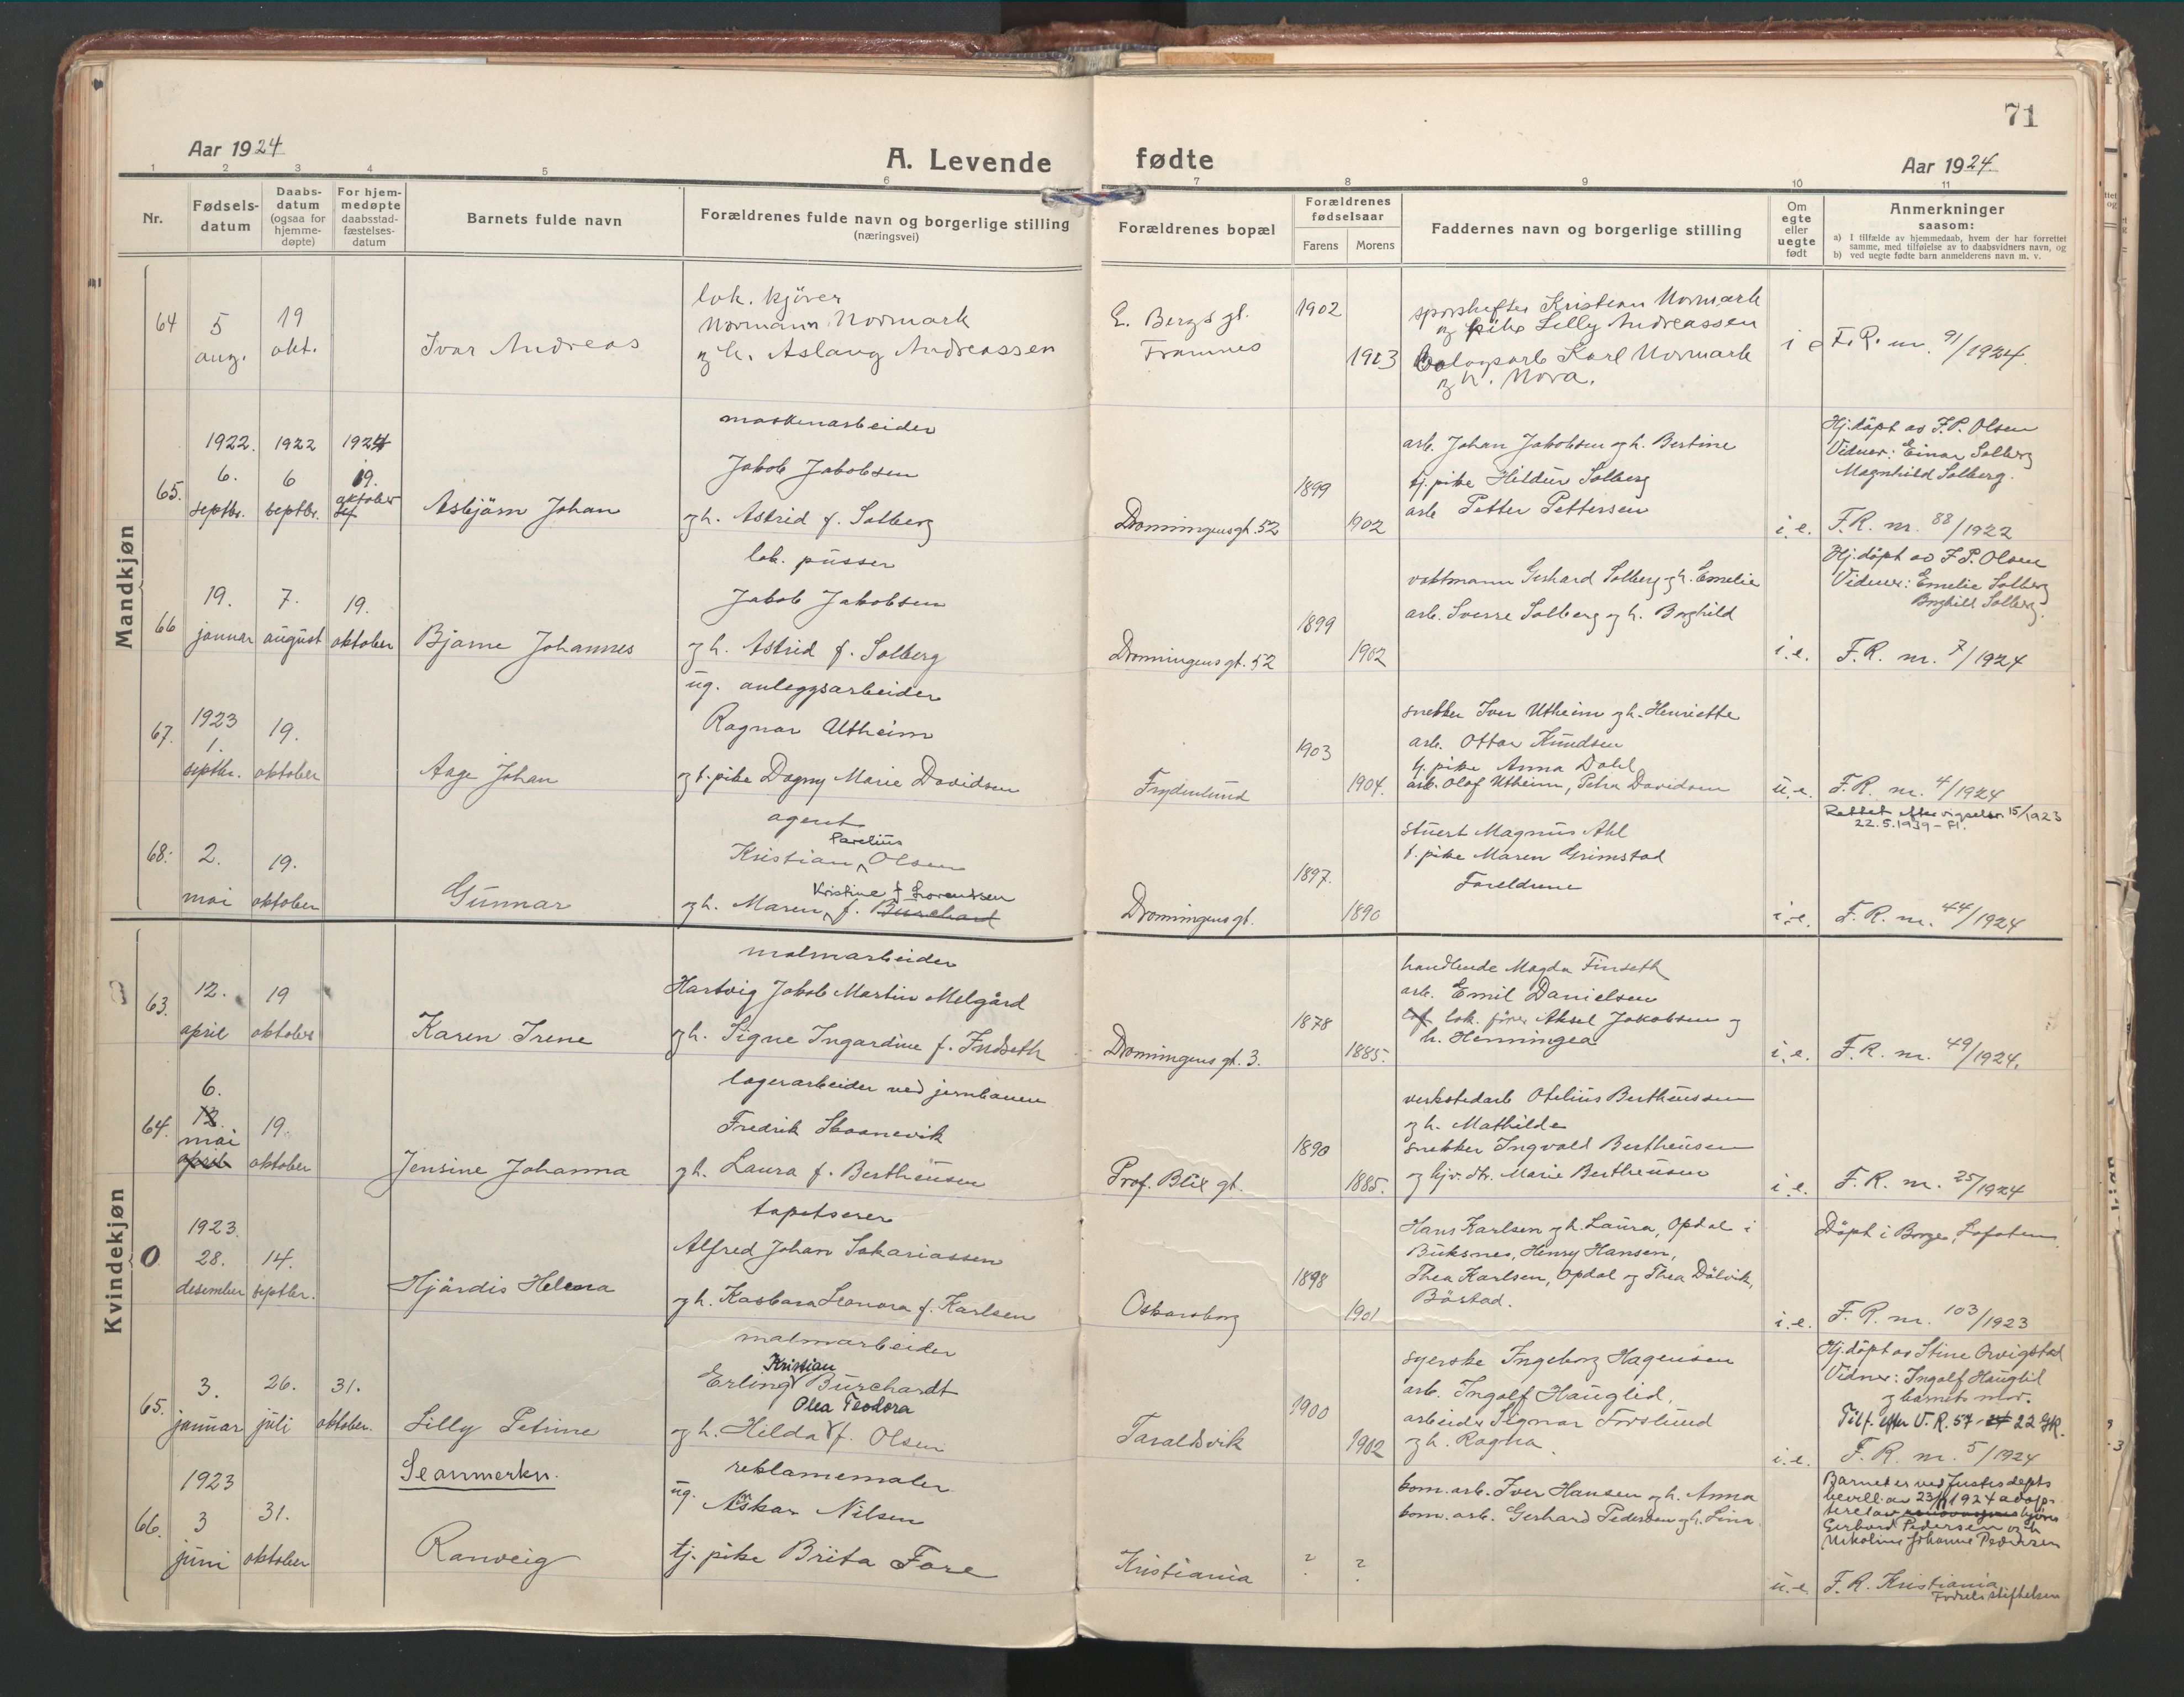 71
Aar 1924
A. Levende fødte
Aar 1924.
1 2 3 4 5 6 7 8 9 10 11
Nr.
Fødsels-
datum
Daabs-
datum
(ogsaa for
hjemme-
døpte)
For hjem-
medøpte
daabsstad-
fæstelses-
datum
Barnets fulde navn
Forældrenes fulde navn og borgerlige stilling
(næringsvei)
Forældrenes bopæl
Forældrenes
fødselsaar
Farens
Morens
Faddernes navn og borgerlige stilling
Om
egte
eller
uegte
født
Anmerkninger
saasom:
a) I tilfælde av hjemmedaab, hvem der har forrettet
samme, med tilføielse av to daabsvidners navn, og
b) ved uegte fødte barn anmelderens navn m. v.
Mandkjøn
64
5
aug.
19
okt.
Ivar Andreas
lok. kjörer
Normann Normark
og h. Aslaug Andreassen
E. Bergs gt.
Framnes
1902
1903
sporskifter Kristian Normark
og pike Lilly Andreassen
Karl Normark
og h. Nora.
i e
F. R. nr. 91/1924.
65.
1922.
6.
septbr.
1922
6
septbr.
1924
19.
oktober
Asbjörn Johan
maskinarbeider
Jakob Jakobsen
og h. Astrid f. Solberg
Dronningensgt. 52
1899
1902
arb. Johan Jakobsen og h. Bertine
tj. pike Hildur Solberg
arb. Petter Pettersen
i. e.
Hj. döpt av F. P. Olsen
Vidner: Einar Solberg
Magnhild Solberg.
F. R. nr. 88/1922
66
19.
januar
7.
august
19.
oktober
Bjarne Johannes
lok. pusser
Jakob Jakobsen
og h. Astrid f. Solberg
Dronningens gt. 52
1899
1902
vaktmann Gerhard Solberg og h. Emelie
arb. Sverre Solberg og h. Borghild
i. e.
Hj. döpt av F. P. Olsen
Vidner: Emelie Solberg
Borghild Solberg.
F. R. nr. 7/1924
67.
1923
1.
septbr.
19.
oktober
Aage Johan
ug. anleggsarbeider
Ragnar Utheim
og t. pike Dagny Marie Davidsen
Frydenlund
1903
1904.
snekker Iver Utheim og h. Henriette
arb. Ottar Knudsen
tj. pike Anna Dahl
arb. Olaf Utheim, Petra Davidsen
u. e.
F. R. nr. 4/1924
68.
2.
mai
19.
oktober
Gunnar
agent
Parelius
Kristian Olsen
Kristine f Lorentsen
og h. Maren f. Burchard
Dronningensgt.
1897.
1890
stuert Magnus Ahl
t. pike Maren Grimstad
Foreldrene
i. e.
Rettet efter vigselsr. 15/1923
22.5.1939 - Fl.
F. R. nr. 44/1924
Kvindekjøn
63.
12.
april
19
oktober
Karen Irene
malmarbeider
Hartvig Jakob Martin Melgård
og h. Signe Ingardine f. Indseth
Dronningens gt. 3.
1878
1885.
handlende Magda Finseth
arb. Emil Danielsen
lok. förer Aksel Jakobsen og
h. Henningea
i. e.
F. R. nr. 49/1924.
64.
6.
12.
mai
april
19.
oktober
Jensine Johanna
lagerarbeider ved jernbanen
Fredrik Skaanevik
og h. Laura f. Bertheusen
Prof. Blix gt.
1890
1885.
verkstedarb Otelius Bertheussen
og h. Mathilde
snekker Ingvald Bertheusen
og hjv. dtr. Marie Bertheusen
i. e.
F. R. nr. 25/1924
0
1923.
28.
desember
14.
septbr.
Hjördis Helena
tapetserer
Alfred Johan Sakariassen
og h. Kasbara Leonora f. Karlsen
Oskarsborg
1898
1901
Hans Karlsen og h. Laura, Opdal i
Buksnes, Henry Hansen,
Thea Karlsen, Opdal og Thea Dölvik,
Böstad.
i. e.
Döpt i Borge, Lofoten.
F. R. nr. 103/1923
65.
3.
januar
26.
juli
31.
oktober.
Lilly Petrine
malmarbeider
Kristian
Erling Burchardt
Olea Teodora
og h. Hilda f. Olsen
Taraldsvik
1900
1902
syerske Ingeborg Hagensen
arb. Ingolf Hauglid,
arbeider Signar Forslund
og h. Ragna.
i. e.
Hj. döpt av Stine Orvigstad
Vidner: Ingolf Hauglid
og barnets mor.
Tilf. efter V. R. 57 - 22 GK.
F. R. nr. 5/1924
66.
1923
3
juni
31.
oktober
Se anmerkn.
Ranveig
reklamemaler
ug. Askar Nilsen
tj. pike Brita Fore
Kristiania
?
?
kom. arb. Iver Hansen og h. Anna
kom. arb. Gerhard Pedersen og h. Lina
u. e.
Barnet er ved Justisdepts
bevill. av 23/ 1924 adop-
tert av
Gerhard Pedersen og h.
Nikoline Johanne Pedersen
F. R. Kristiania
Fødselsstiftelsen